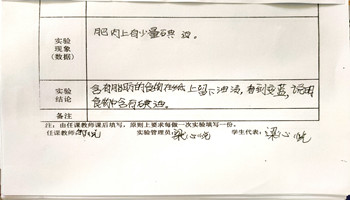 实验
现象
(数据)
肥肉上有少量碘油。
实验
结论
含有脂肪的食物在纸上留下油渍,看到变蓝,说明
食物中含有碘油。
备注
注:由任课教师课后填写,原则上要求每做一次实验填写一份。
任课教师: 实验管理员:梁心悦 学生代表:梁心悦